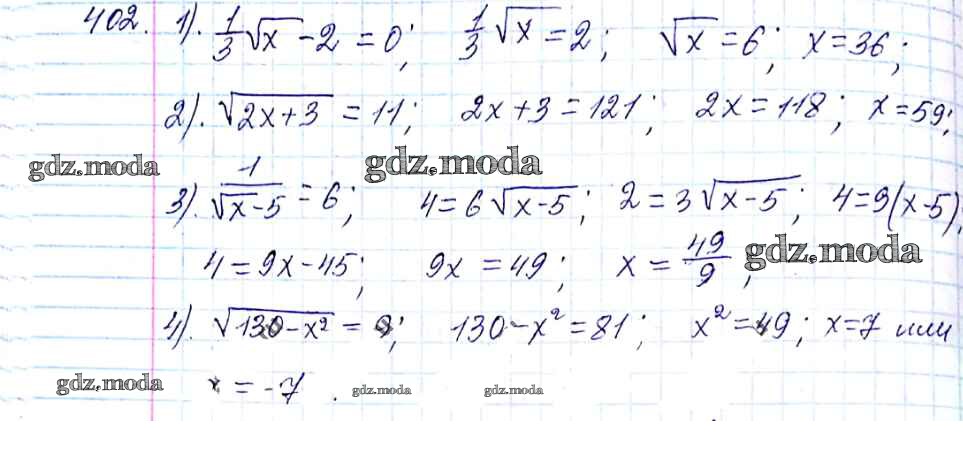 402. 1). 1/3 √x - 2 = 0; 1/3 √x = 2; √x = 6; x = 36;
2). √(2x+3) = 11; 2x + 3 = 121; 2x = 118; x = 59;
gdz.moda gdz.moda
3). 1/(√x-5) = 6; 4 = 6√(x-5); 2 = 3√(x-5); 4 = 9(x-5);
4 = 9x - 45; 9x = 49; x = 49/9; gdz.moda
4). √(130-x²) = 9; 130 - x² = 81; x² = 49; x = 7 или
gdz.moda x = -7. gdz.moda gdz.moda